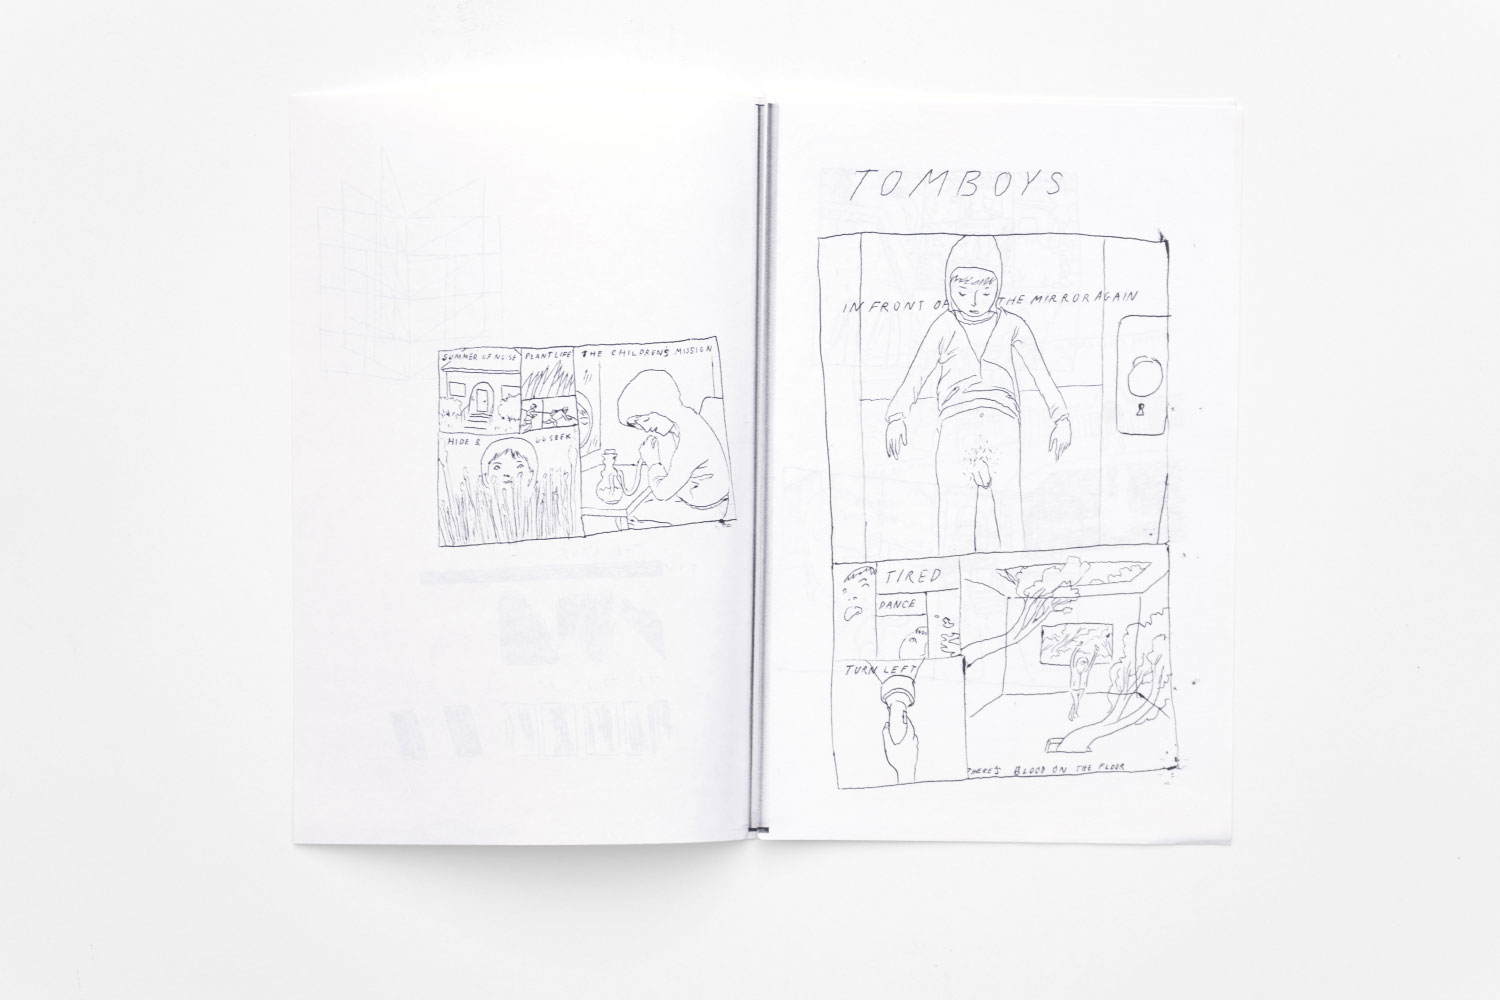 SUMMER OF NOISE
PLANT LIFE
THE CHILDRENS MISSION
HIDE &
SEEK
TOMBOYS
IN FRONT OF THE MIRROR AGAIN
TIRED
DANCE
TURN LEFT
THERE'S BLOOD ON THE FLOOR